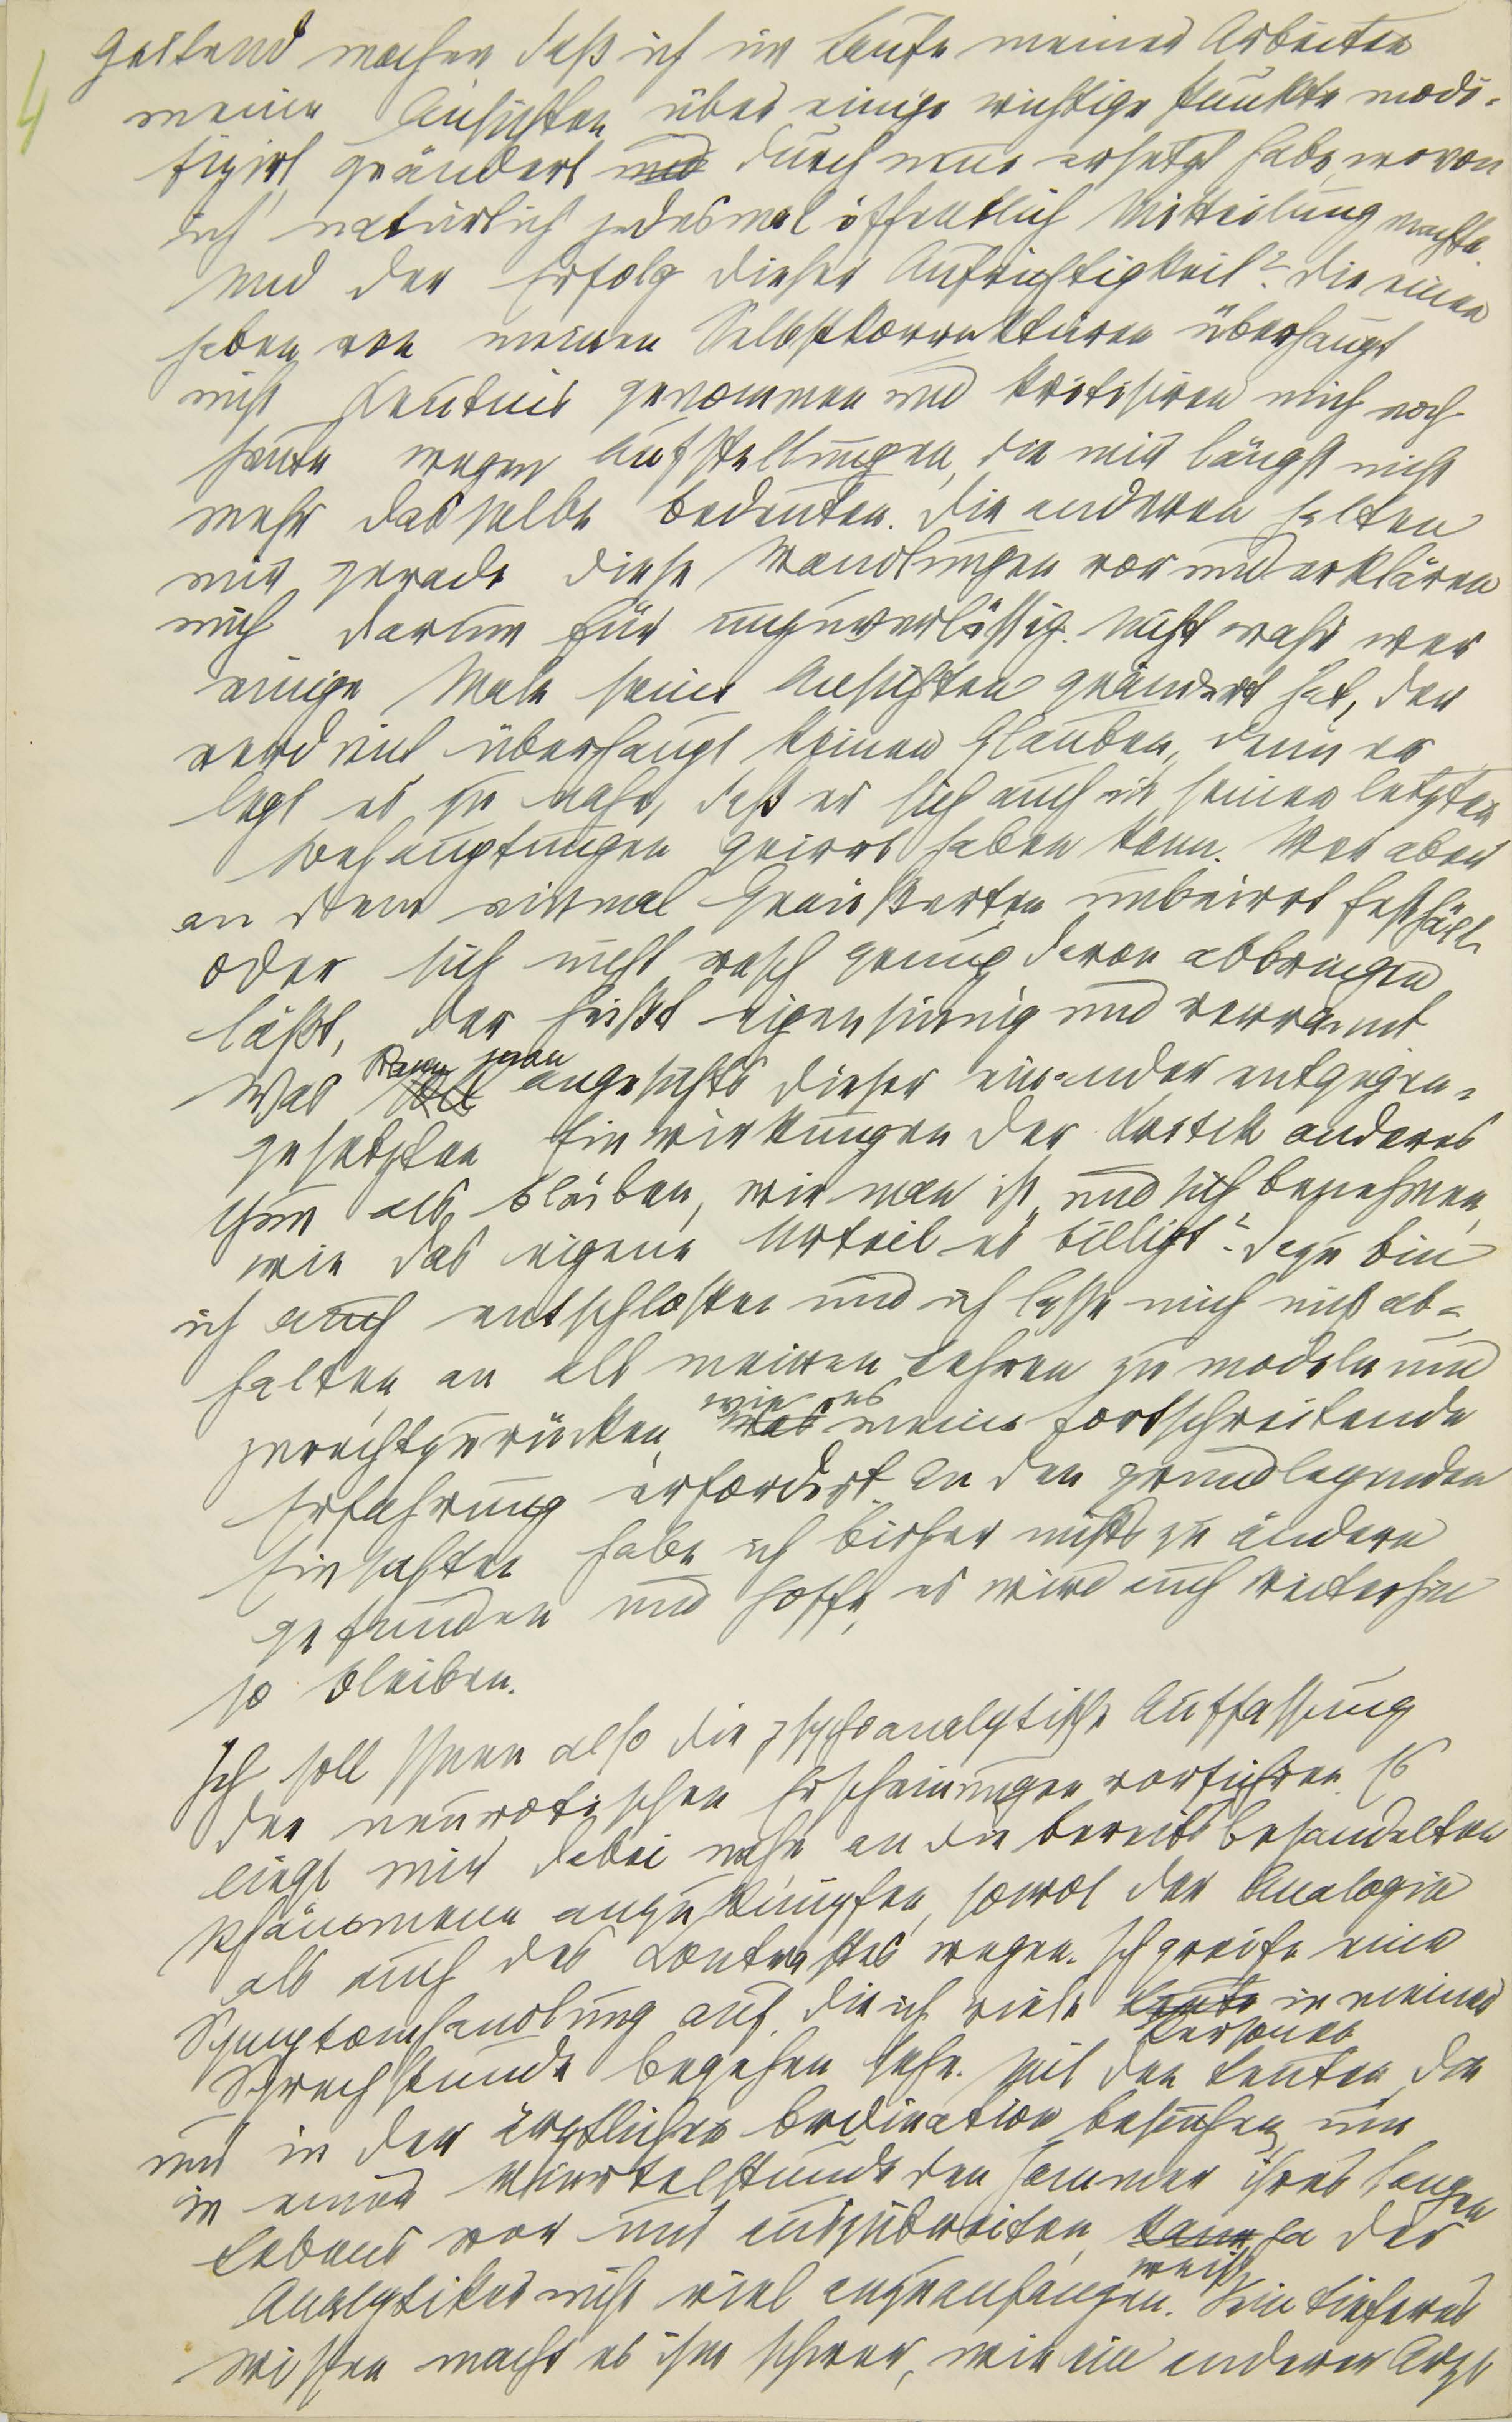 4
geltend machen, daß ich im Laufe meiner Arbeiten
meine Ansichten über einige wichtige Punkte modi-
fizirt, geändert und durch neue ersetzt habe, wovon
ich natürlich jedesmal öffentlich Mitteilung machte.
Und der Erfolg dieser Aufrichtigkeit? Die einen
haben von meinen Selbstkorrekturen überhaupt
nicht Kenntnis genommen und kritisiren mich noch
heute wegen Aufstellungen, die mir längst nicht
mehr dasselbe bedeuten. Die anderen halten
mir gerade diese Wandlungen vor und erklären
mich darum für unzuverlässig. Nicht wahr, wer
einige Male seine Ansichten geändert hat, der
verdient überhaupt keinen Glauben, denn er
legt es zu nahe, daß er sich auch in seinen letzten
Behauptungen geirrt haben kann. Wer aber
an dem einmal Geäußerten unbeirrt festhält
oder sich nicht rasch genug davon abbringen
läßt, der heißt eigensinnig und verrannt
kann man
Was angesichts dieser einander entgegen-
gesetzten Einwirkungen der Kritik anderes
thun als bleiben, wie man ist, und sich benehmen,
wie das eigene Urteil es billigt? Dazu bin
ich auch entschlossen und ich lasse mich nicht ab-
halten, an all meinen Lehren zu modeln und
wie es
zurechtzurücken, was meine fortschreitende
Erfahrung erfordert. An den grundlegenden
Einsichten habe ich bisher nichts zu ändern
gefunden und hoffe, es wird auch weiterhin
so bleiben.
Ich soll Ihnen also die psychoanalytische Auffassung
der neurotischen Erscheinungen vorführen. Es
liegt mir dabei nahe an die bereits behandelten
Phänomene anzuknüpfen, sowol der Analogie
als auch des Contrastes wegen. Ich greife eine
Symptomhandlung auf, die ich viele Leute in meiner
Personen
Sprechstunde begehen sehe. Mit den Leuten, die
uns in der ärztlichen Ordination besuchen, um
in einer Viertelstunde den Jammer ihres langen
Lebens vor uns auszubreiten, kann ja der
weiß
Analytiker nicht viel anzufangen. Sein tieferes
Wissen macht es ihm schwer, wie ein anderer Arzt